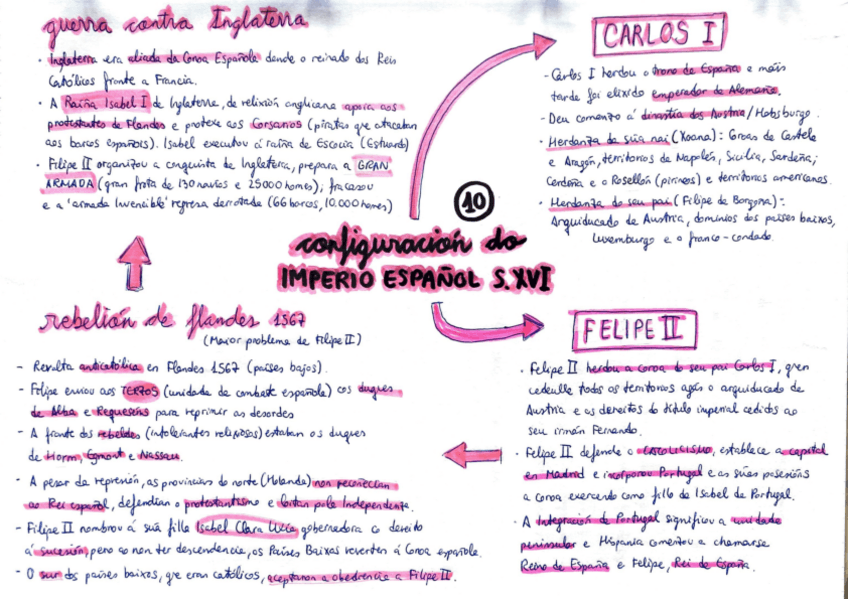 guerra contra Inglaterra
· Inglaterra era aliada da Coroa Española dende o reinado dos Reis
Católicos fronte a Francia.
· A Raíña Isabel I de Inglaterra, de relixión anglicana apoia aos
protestantes de Flandes e protexe aos Corsarios (piratas que atacaban
aos barcos españois). Isabel executou á raíña de Escocia (Estuardo)
· Filipe II organizou a conquista de Inglaterra, prepara a GRAN
ARMADA (gran frota de 130 navíos e 25000 homes); fracasou
e a 'armada Invencible' regresa derrotada (66 barcos, 10.000 homes)
CARLOS I
- Carlos I herdou o trono de España e máis
tarde foi elixido emperador de Alemaña.
- Deu comenzo á dinastía dos Austria / Habsburgo.
· Herdanza da súa nai (Xoana): Coroas de Castela
e Aragón, territorios de Napoles, Sicilia, Sardeña,
Cerdeña e o Rosellón (pirineos) e territorios americanos.
· Herdanza do seu pai (Filipe de Borgoña):
Arquiducado de Austria, dominios dos países baixos,
Luxemburgo e o franco-condado.
10
configuración do
IMPERIO ESPAÑOL S.XVI
rebelión de flandes 1567
(Maior problema de Filipe II)
- Revolta anticatólica en Flandes 1567 (países bajos).
- Felipe enviou aos TERZOS (unidade de combate española) cos duques
de Alba e Requesens para reprimir as desordes
- A fronte dos rebeldes (intolerantes relixiosos) estaban os duques
de Horm, Egmont e Nassau.
- A pesar da represión, as provincias do norte (Holanda) non recoñecían
ao Rei español, defendían o protestantismo e loitan pola Independencia.
- Filipe II nombrou á súa filla Isabel Clara gobernadora co dereito
á sucesión, pero ao non ter descendencia, os Países Baixos reverten á Coroa española.
- O sur dos países baixos, que eran católicos, aceptaron a obediencia a Filipe II.
FELIPE II
· Felipe II herdou a coroa do seu pai Carlos I, quen
cedeulle todos os territorios agás o arquiducado de
Austria e os dereitos do título imperial cedidos ao
seu irmán Fernando.
· Felipe II defende o CATOLICISMO, establece a capital
en Madrid e incorporou Portugal e as súas posesións
a coroa exercendo como fillo de Isabel de Portugal.
· A Integración de Portugal significou a unidade
peninsular e Hispania comenzou a chamarse
Reino de España e Felipe, Rei de España.